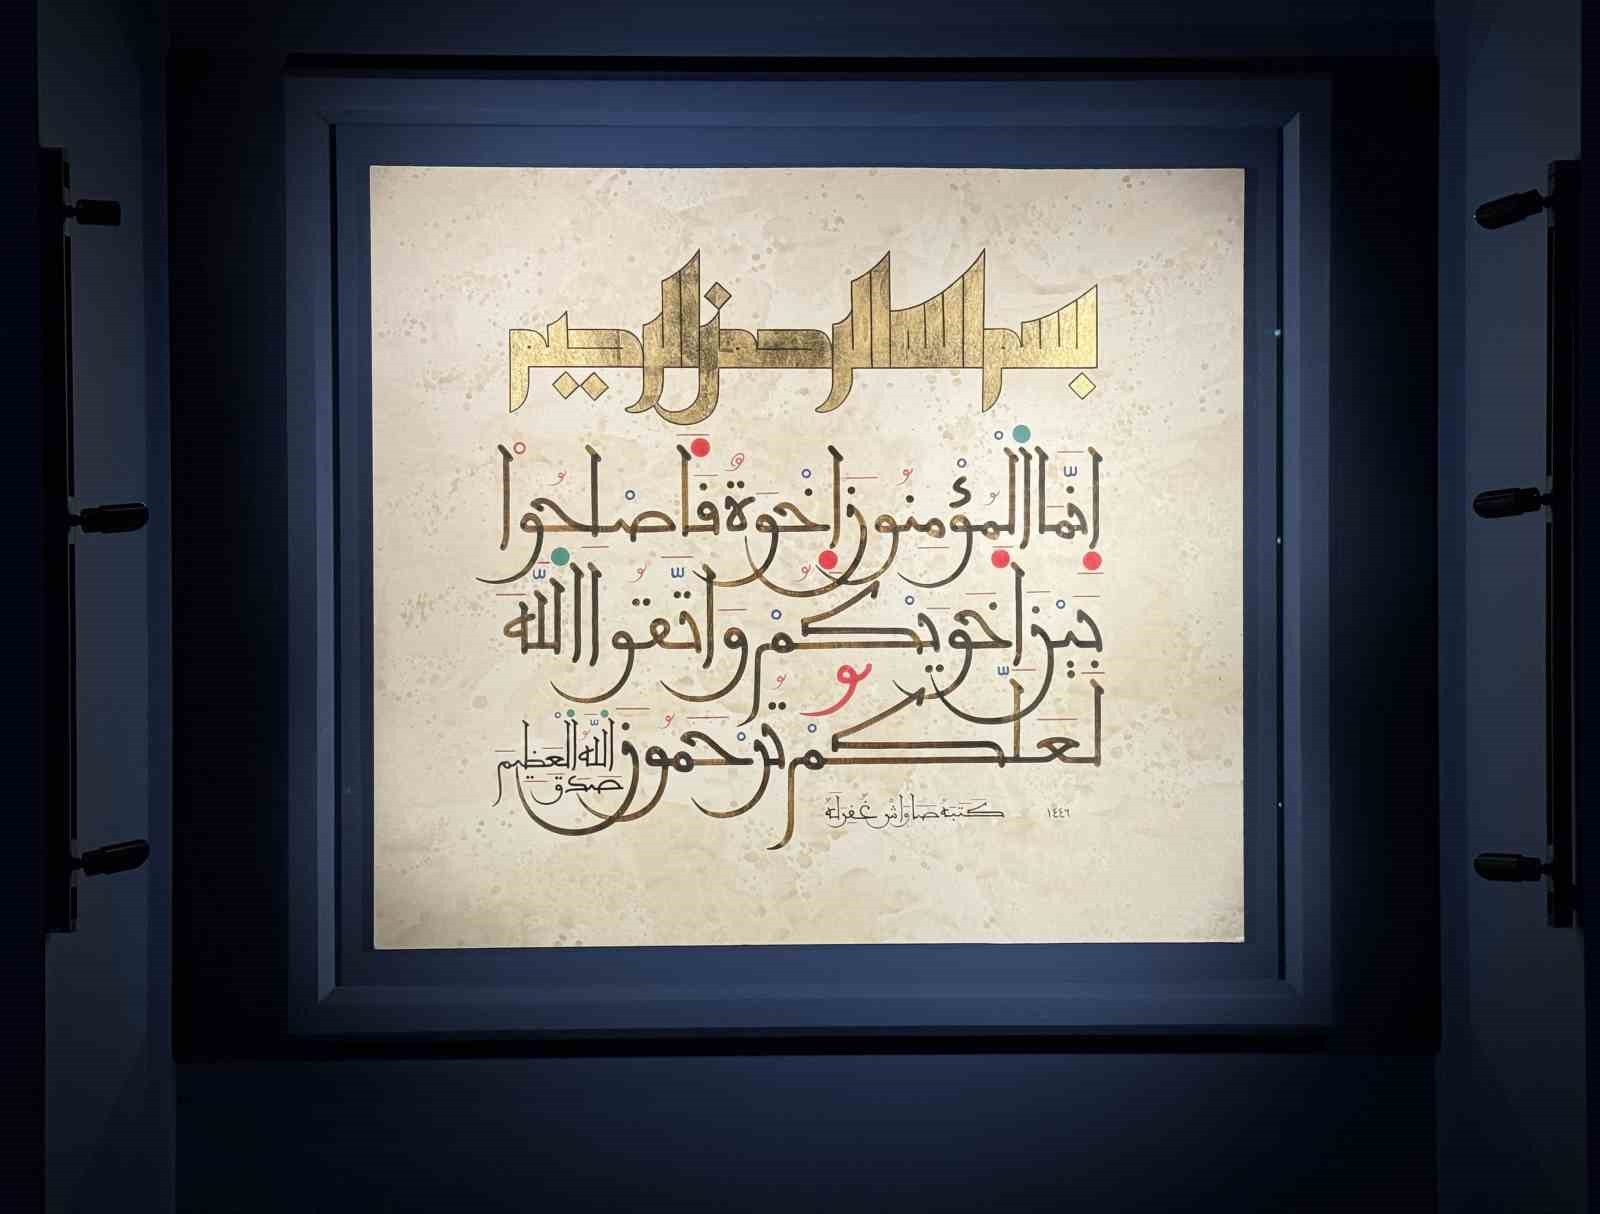 بسم الله الرحمن الرحيم
إِنَّمَا الْمُؤْمِنُونَ إِخْوَةٌ فَأَصْلِحُوا
بَيْنَ أَخَوَيْكُمْ وَاتَّقُوا اللَّهَ
لَعَلَّكُمْ تُرْحَمُونَ
صَدَقَ اللَّهُ الْعَظِيم
كتبه صاواش غفرله ١٤٤٦